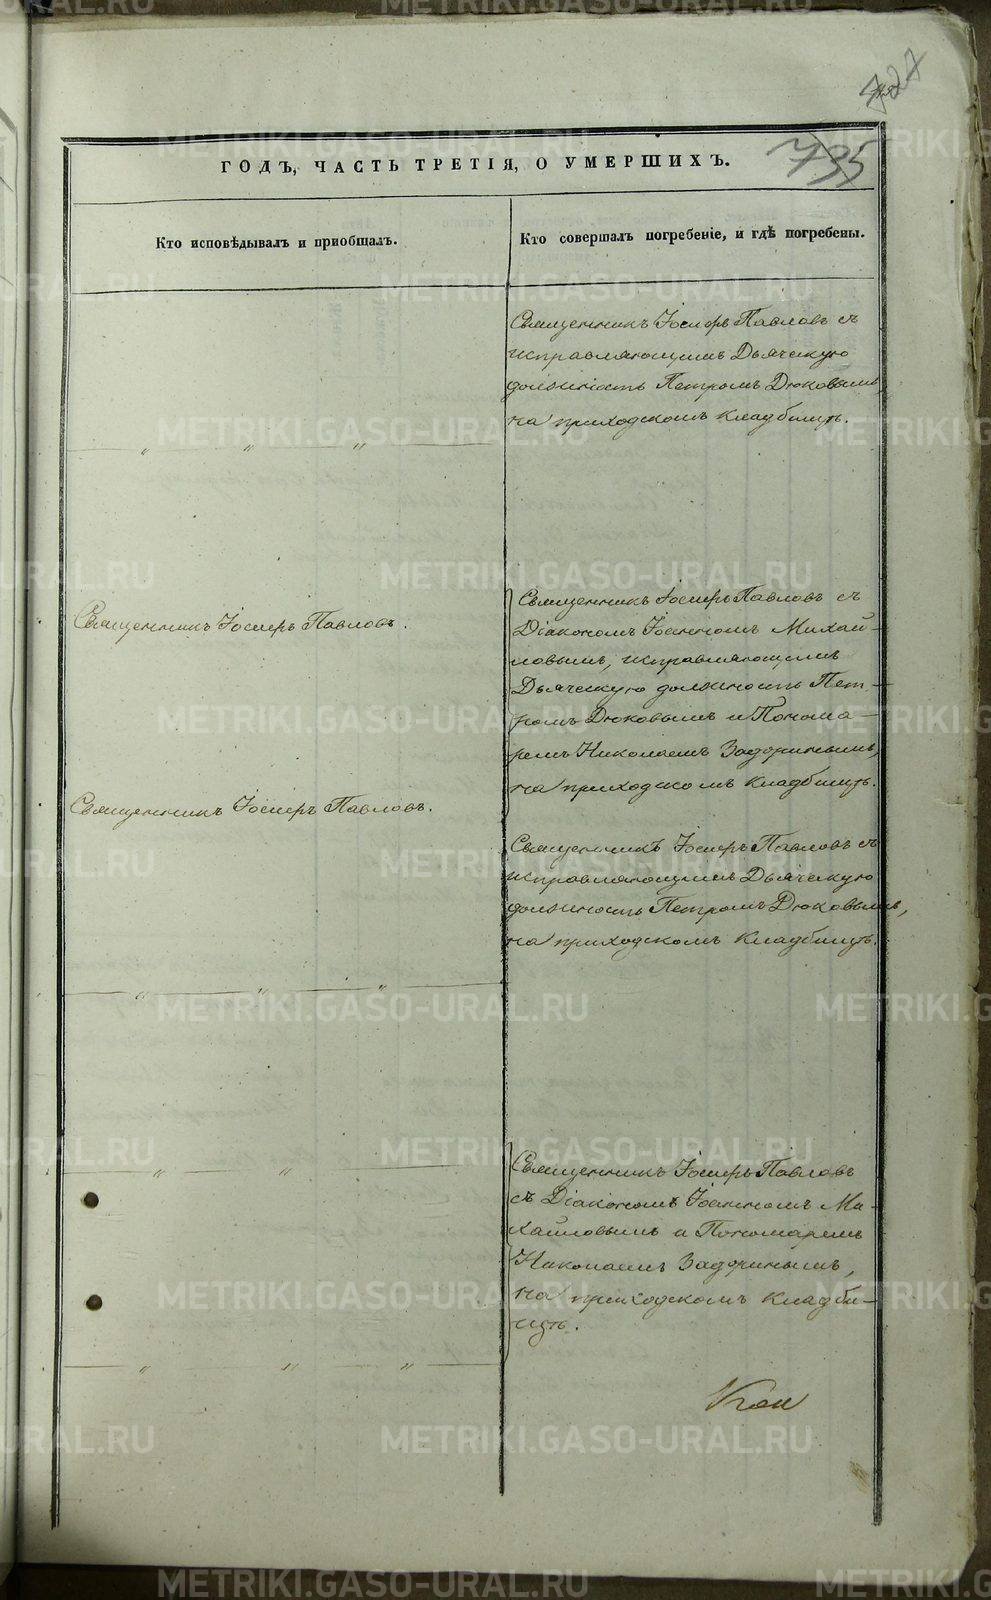 727
735
ГОДЪ, ЧАСТЬ ТРЕТІЯ, О УМЕРШИХЪ.
Кто исповѣдывалъ и приобщалъ.
Кто совершалъ погребеніе, и гдѣ погребены.
Священникъ Іосифъ Павловъ съ
исправляющимъ Дьяческую
должность Петромъ Дюковымъ,
на приходскомъ кладбищѣ.
" " "
Священникъ Іосифъ Павловъ.
Священникъ Іосифъ Павловъ съ
Діакономъ Іоанномъ Михай-
ловымъ, исправляющимъ
Дьяческую должность Пет-
ромъ Дюковымъ и Понома-
ремъ Николаемъ Задоринымъ,
на приходскомъ кладбищѣ.
Священникъ Іосифъ Павловъ.
Священникъ Іосифъ Павловъ съ
исправляющимъ Дьяческую
должность Петромъ Дюковымъ,
на приходскомъ кладбищѣ.
" " "
" "
Священникъ Іосифъ Павловъ
съ Діакономъ Іоанномъ Ми-
хайловымъ и Пономаремъ
Николаемъ Задоринымъ,
на приходскомъ кладби-
щѣ.
" " "
METRIKI.GASO-URAL.RU